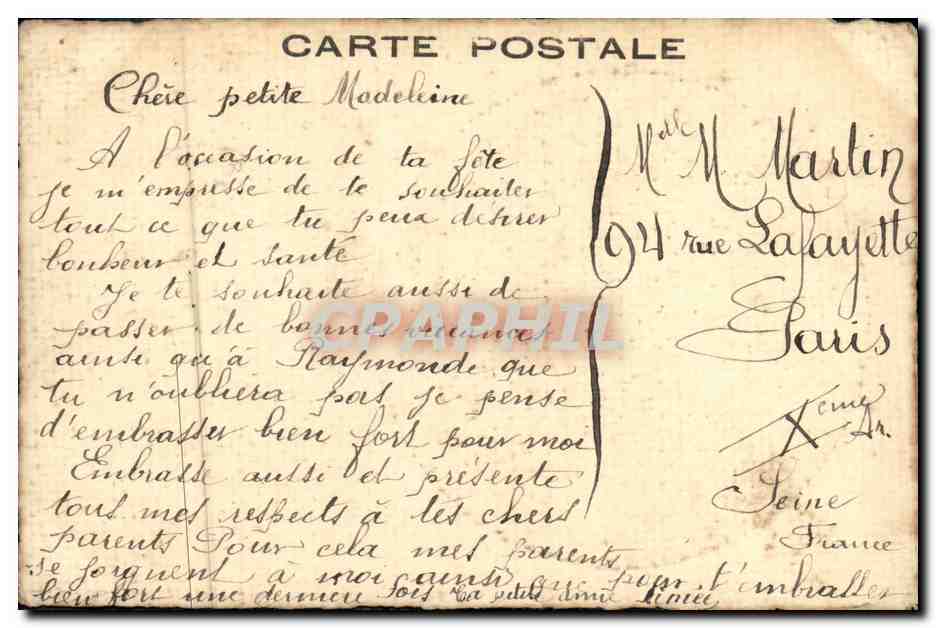 CARTE POSTALE
Chère petite Madeleine
A l'occasion de ta fête
je m'empresse de te souhaiter
tout ce que tu peux désirer
bonheur et santé
Je te souhaite aussi de
passer de bonnes vacances
ainsi qu'à Raymonde que
tu n'oubliera pas je pense
d'embrasser bien fort pour moi
Embrasse aussi et présente
tous mes respects à tes chers
parents Pour cela mes parents
se joignent à moi ainsi que pour t'embrasser
bien fort une dernière fois Ta petite amie
Melle M. Martin
94 rue Lafayette
Paris
Xeme Ar.
Seine
France
CPAPHIL